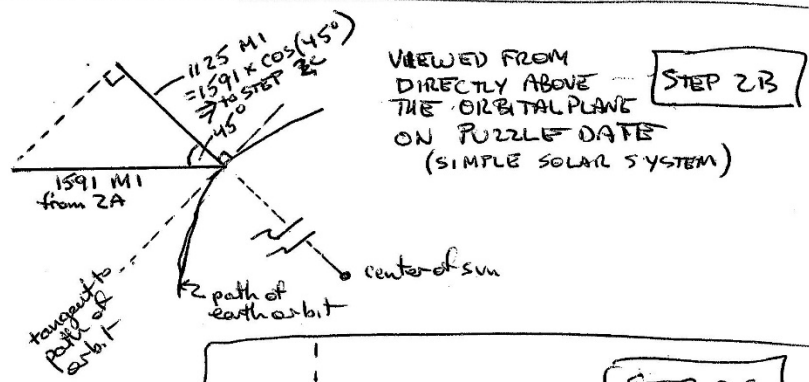 1125 MI
=1591 x COS(45°)
⇒ to STEP 2C
45°
1591 MI
from 2A
VIEWED FROM
DIRECTLY ABOVE
THE ORBITAL PLANE
ON PUZZLE DATE
(SIMPLE SOLAR SYSTEM)
STEP 2B
center of sun
path of
earth orbit
tangent to
path of
orbit